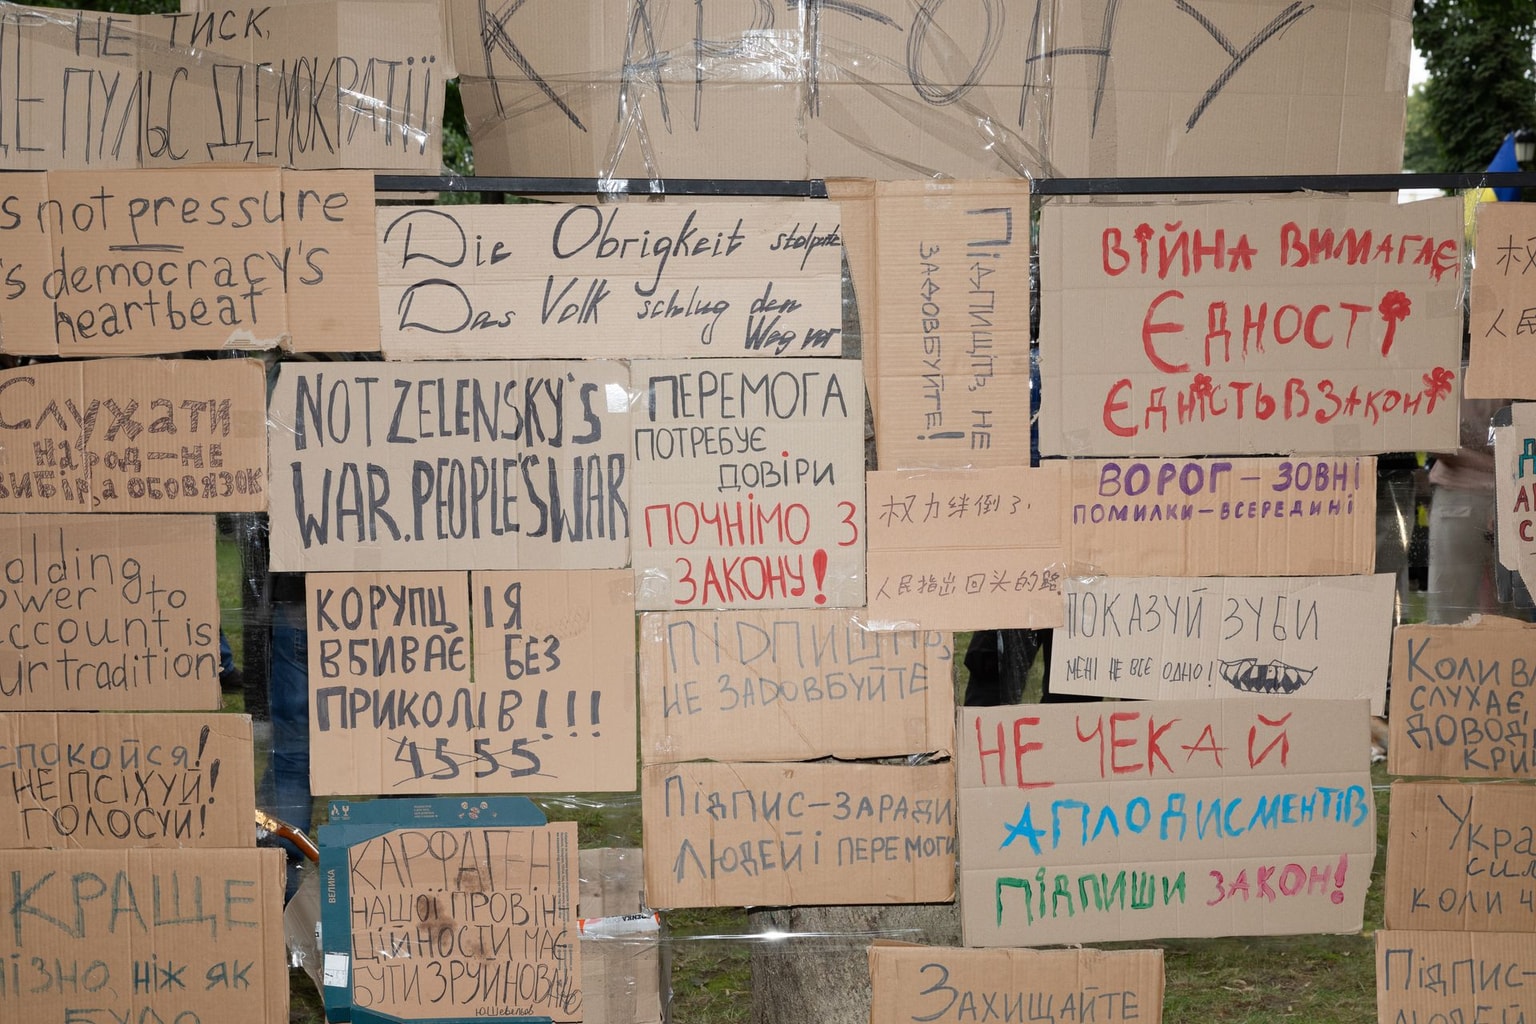 НЕ ТИСК,
ЦЕ ПУЛЬС ДЕМОКРАТІЇ
КАРТОНУ
's not pressure
's democracry's
heartbeat
Die Obrigkeit stolperte
Das Volk schlug den
Weg vor
Підпишіть, не
задовбуйте!
ВІЙНА ВИМАГАЄ
ЄДНОСТІ
ЄДНІСТЬ В ЗАКОНІ
人民
Слухати
народ — не
вибір, а обов'язок
NOT ZELENSKY'S
WAR. PEOPLE'S WAR
ПЕРЕМОГА
ПОТРЕБУЄ
ДОВІРИ
ПОЧНІМО З
ЗАКОНУ!
权力绊倒了,
人民指出回头的路
ВОРОГ – ЗОВНІ
ПОМИЛКИ – ВСЕРЕДИНІ
olding
ower to
ccount is
ur tradition
КОРУПЦІЯ
ВБИВАЄ БЕЗ
ПРИКОЛІВ!!!
4555
ПІДПИШІТЬ,
НЕ ЗАДОВБУЙТЕ
ПОКАЗУЙ ЗУБИ
МЕНІ НЕ ВСЕ ОДНО!
Коли вл
слухає,
доводи
кри
спокойся!
НЕ ПСІХУЙ!
ГОЛОСУЙ!
Підпис – заради
людей і перемоги
НЕ ЧЕКАЙ
АПЛОДИСМЕНТІВ
ПІДПИШИ ЗАКОН!
Укра
сил
коли ч
КРАЩЕ
ПІЗНО, ніж як
БУДО
ВЕЛИКА
КАРФАГЕН
НАШОЇ ПРОВІН-
ЦІЙНОСТИ МАЄ
БУТИ ЗРУЙНОВАНО
Ю. Шевельов
Захищайте
Підпис –
людей